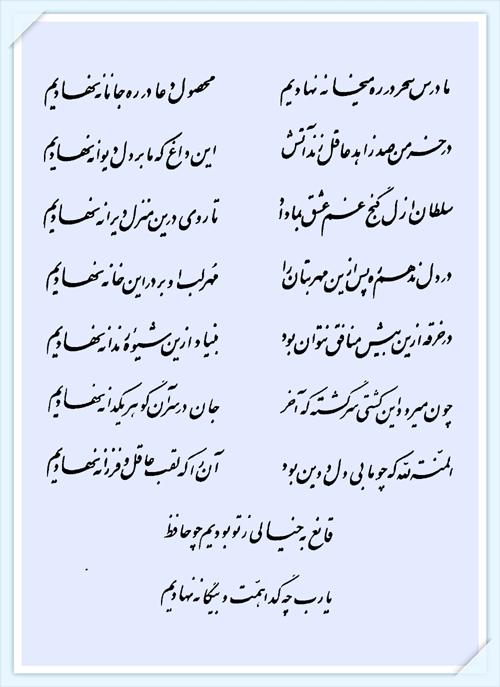 ما درس سحر در ره میخانه نهادیم محصول دعا در ره جانانه نهادیم
در خرمن صد زاهد عاقل زند آتش این داغ که ما بر دل دیوانه نهادیم
سلطان ازل گنج غم عشق بما داد تا روی درین منزل ویرانه نهادیم
در دل ندهم ره پس ازین مهر بتان را مهر لب او بر در این خانه نهادیم
در خرقه ازین بیش منافق نتوان بود بنیاد ازین شیوهٔ رندانه نهادیم
چون میرود این کشتی سرگشته که آخر جان در سر آن گوهر یکدانه نهادیم
المنة لله که چو ما بی دل و دین بود آن را که لقب عاقل و فرزانه نهادیم
قانع به خیالی ز تو بودیم چو حافظ
یارب چه گدا همت و بیگانه نهادیم